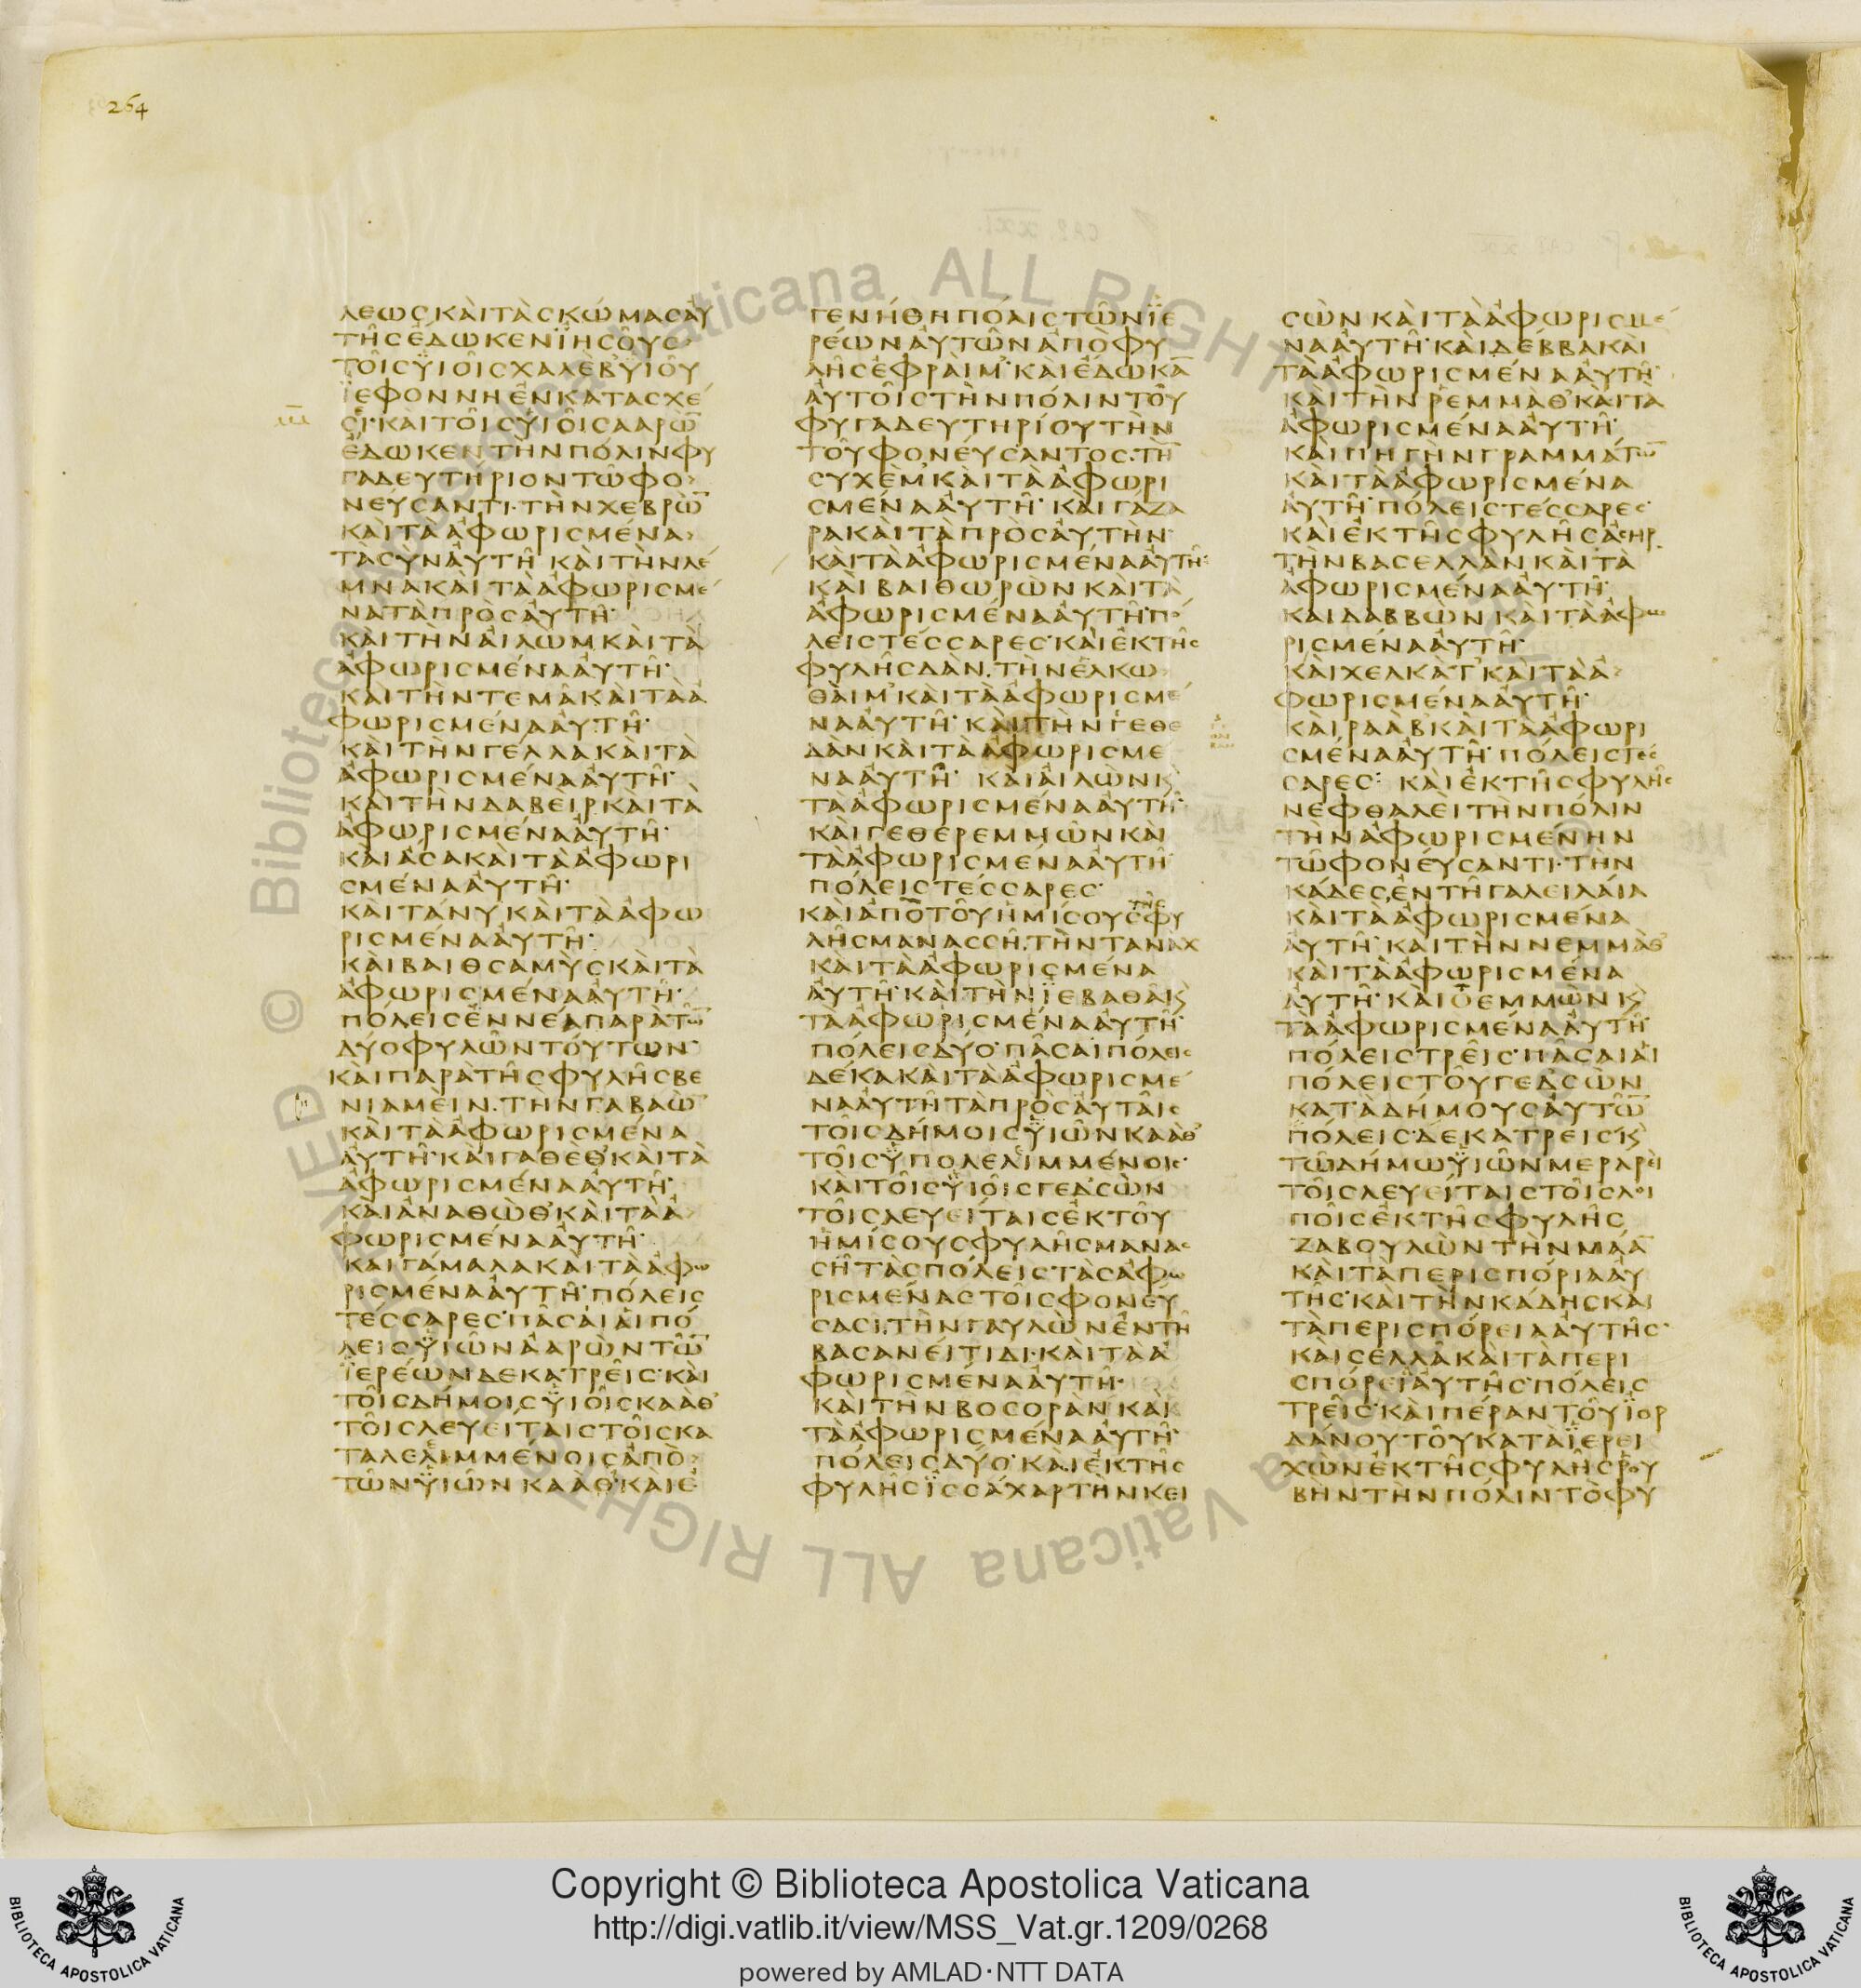 254
ΛΕΩϹ ΚΑῚ ΤᾺϹ ΚΏΜΑϹ ΑΥ
ΤΗ͂Ϲ ἜΔΩΚΕΝ ἸΗϹΟΥ͂Ϲ
ΤΟΙ͂Ϲ ΥἹΟΙ͂Ϲ ΧΑΛῈΒ ΥἹΟΥ͂
ΪΕΦΟΝΝΗ ἘΝ ΚΑΤΑϹΧΕ
ϹΙ· ΚΑῚ ΤΟΙ͂Ϲ ΥἹΟΙ͂Ϲ ΑΑΡΩ̅
ἜΔΩΚΕΝ ΤῊΝ ΠΌΛΙΝ ΦΥ
ΓΑΔΕΥΤΗΡΙΟΝ ΤΩ͂ ΦΟ
ΝΕΎϹΑΝΤΙ· ΤῊΝ ΧΕΒΡΩ̅
ΚΑῚ ΤᾺ ἈΦΩΡΙϹΜΈΝΑ
ΤᾺ ϹῪΝ ΑΥΤΗ͂· ΚΑῚ ΤῊΝ ΛΕ
ΜΝΑ ΚΑῚ ΤᾺ ἈΦΩΡΙϹΜΕ
ΝΑ ΤᾺ ΠΡῸϹ ΑΥΤΗ͂·
ΚΑῚ ΤῊΝ ΑΙΛΩΜ ΚΑῚ ΤᾺ
ἈΦΩΡΙϹΜΈΝΑ ΑΥΤΗ͂·
ΚΑῚ ΤῊΝ ΤΕΜΑ ΚΑῚ ΤᾺ Α
ΦΩΡΙϹΜΈΝΑ ΑΥΤΗ͂·
ΚΑῚ ΤῊΝ ΓΕΛΛΑ ΚΑῚ ΤᾺ
ἈΦΩΡΙϹΜΈΝΑ ΑΥΤΗ͂·
ΚΑῚ ΤῊΝ ΔΑΒΕΙΡ ΚΑῚ ΤᾺ
ἈΦΩΡΙϹΜΈΝΑ ΑΥΤΗ͂·
ΚΑῚ ΑϹΑ ΚΑῚ ΤᾺ ἈΦΩΡΙ
ϹΜΈΝΑ ΑΥΤΗ͂·
ΚΑῚ ΤΑΝΥ ΚΑῚ ΤᾺ ἈΦΩ
ΡΙϹΜΈΝΑ ΑΥΤΗ͂·
ΚΑῚ ΒΑΙΘϹΑΜῪϹ ΚΑῚ ΤᾺ
ἈΦΩΡΙϹΜΈΝΑ ΑΥΤΗ͂·
ΠΌΛΕΙϹ ἘΝΝΈΑ ΠΑΡᾺ ΤΩ̅
ΔΎΟ ΦΥΛΩ͂Ν ΤΟΎΤΩΝ·
ΚΑῚ ΠΑΡᾺ ΤΗ͂Ϲ ΦΥΛΗ͂Ϲ ΒΕ
ΝΙΑΜΕΙΝ· ΤῊΝ ΓΑΒΑΩ̅
ΚΑῚ ΤᾺ ἈΦΩΡΙϹΜΈΝΑ
ΑΥΤΗ͂· ΚΑῚ ΓΑΘΕΘ ΚΑῚ ΤᾺ
ἈΦΩΡΙϹΜΈΝΑ ΑΥΤΗ͂·
ΚΑῚ ΑΝΑΘΩΘ ΚΑῚ ΤᾺ Α
ΦΩΡΙϹΜΈΝΑ ΑΥΤΗ͂·
ΚΑῚ ΓΑΜΑΛΑ ΚΑῚ ΤᾺ ἈΦΩ
ΡΙϹΜΈΝΑ ΑΥΤΗ͂· ΠΌΛΕΙϹ
ΤΈϹϹΑΡΕϹ· ΠΑ͂ϹΑΙ ΑΙ ΠΌ
ΛΕΙϹ ΥἹΩ͂Ν ΑΑΡῺΝ ΤΩ̅
ΪΕΡΈΩΝ ΔΕΚΑΤΡΕΙ͂Ϲ· ΚΑῚ
ΤΟΙ͂Ϲ ΔΉΜΟΙϹ ΥἹΟΙ͂Ϲ ΚΑΑΘ
ΤΟΙ͂Ϲ ΛΕΥΕΊΤΑΙϹ ΤΟΙ͂Ϲ ΚΑ
ΤΑΛΕΛΙΜΜΈΝΟΙϹ ἈΠῸ
ΤΩ͂Ν ΥἹΩ͂Ν ΚΑΑΘ· ΚΑῚ Ε
ΓΕΝΉΘΗ ΠΌΛΙϹ ΤΩ͂Ν ΪΕ
ΡΈΩΝ ΑΥΤΩ͂Ν ἈΠῸ ΦΥ
ΛΗ͂Ϲ ΕΦΡΑΙΜ· ΚΑῚ ἜΔΩΚΑ̅
ΑΥΤΟΙ͂Ϲ ΤῊΝ ΠΌΛΙΝ ΤΟΥ͂
ΦΥΓΑΔΕΥΤΗΡΊΟΥ ΤῊΝ
ΤΟΥ͂ ΦΟΝΕΎϹΑΝΤΟϹ· ΤΗ̅
ϹΥΧΕΜ ΚΑῚ ΤᾺ ἈΦΩΡΙ
ϹΜΈΝΑ ΑΥΤΗ͂· ΚΑῚ ΓΑΖΑ
ΡΑ ΚΑῚ ΤᾺ ΠΡῸϹ ΑΥΤῊΝ
ΚΑῚ ΤᾺ ἈΦΩΡΙϹΜΈΝΑ ΑΥΤΗ͂·
ΚΑῚ ΒΑΙΘΩΡῺΝ ΚΑῚ ΤᾺ
ἈΦΩΡΙϹΜΈΝΑ ΑΥΤΗ͂· ΠΌ
ΛΕΙϹ ΤΈϹϹΑΡΕϹ· ΚΑῚ ἘΚ ΤΗ͂Ϲ
ΦΥΛΗ͂Ϲ ΔΑΝ· ΤῊΝ ΕΛΚΩ
ΘΑΙΜ· ΚΑῚ ΤᾺ ἈΦΩΡΙϹΜΕ
ΝΑ ΑΥΤΗ͂· ΚΑῚ ΤῊΝ ΓΕΘΕ
ΔΑΝ ΚΑῚ ΤᾺ ἈΦΩΡΙϹΜΕ
ΝΑ ΑΥΤΗ͂· ΚΑῚ ΑΙΛΩΝ Κ
ΤᾺ ἈΦΩΡΙϹΜΈΝΑ ΑΥΤΗ͂·
ΚΑῚ ΓΕΘΕΡΕΜΜΩΝ ΚΑῚ
ΤᾺ ἈΦΩΡΙϹΜΈΝΑ ΑΥΤΗ͂
ΠΌΛΕΙϹ ΤΈϹϹΑΡΕϹ·
ΚΑῚ ἈΠῸ ΤΟΥ͂ ἩΜΊϹΟΥϹ ΤΗϹ ΦΥ
ΛΗ͂Ϲ ΜΑΝΑϹϹΗ· ΤῊΝ ΤΑΝΑΧ
ΚΑῚ ΤᾺ ἈΦΩΡΙϹΜΈΝΑ
ΑΥΤΗ͂· ΚΑῚ ΤῊΝ ΪΕΒΑΘΑ Κ
ΤᾺ ἈΦΩΡΙϹΜΈΝΑ ΑΥΤΗ͂·
ΠΌΛΕΙϹ ΔΎΟ· ΠΑ͂ϹΑΙ ΠΌΛΕΙϹ
ΔΈΚΑ ΚΑῚ ΤᾺ ἈΦΩΡΙϹΜΕ
ΝΑ ΑΥΤΗ͂ ΤᾺ ΠΡῸϹ ΑΥΤΑΙ͂Ϲ
ΤΟΙ͂Ϲ ΔΉΜΟΙϹ ΥἹΩ͂Ν ΚΑΑΘ
ΤΟΙ͂Ϲ ΫΠΟΛΕΛΙΜΜΈΝΟΙϹ·
ΚΑῚ ΤΟΙ͂Ϲ ΥἹΟΙ͂Ϲ ΓΕΔϹΩΝ
ΤΟΙ͂Ϲ ΛΕΥΕΊΤΑΙϹ ἘΚ ΤΟΥ͂
ἩΜΊϹΟΥϹ ΦΥΛΗ͂Ϲ ΜΑΝΑϹ
ϹΗ ΤᾺϹ ΠΌΛΕΙϹ ΤᾺϹ ἈΦΩ
ΡΙϹΜΈΝΑϹ ΤΟΙ͂Ϲ ΦΟΝΕΎ
ϹΑϹΙ· ΤῊΝ ΓΑΥΛΩΝ ἘΝ ΤΗ
ΒΑϹΑΝΕΊΤΙΔΙ· ΚΑῚ ΤᾺ Α
ΦΩΡΙϹΜΈΝΑ ΑΥΤΗ͂·
ΚΑῚ ΤῊΝ ΒΟϹΟΡΑΝ ΚΑῚ
ΤᾺ ἈΦΩΡΙϹΜΈΝΑ ΑΥΤΗ͂·
ΠΌΛΕΙϹ ΔΎΟ· ΚΑῚ ἘΚ ΤΗ͂Ϲ
ΦΥΛΗ͂Ϲ ΪϹϹΑΧΑΡ ΤῊΝ ΚΕΙ
ϹΩΝ ΚΑῚ ΤᾺ ἈΦΩΡΙϹΜΕ
ΝΑ ΑΥΤΗ͂· ΚΑῚ ΔΕΒΒΑ ΚΑῚ
ΤᾺ ἈΦΩΡΙϹΜΈΝΑ ΑΥΤΗ͂·
ΚΑῚ ΤῊΝ ΡΕΜΜΑΘ ΚΑῚ ΤᾺ
ἈΦΩΡΙϹΜΈΝΑ ΑΥΤΗ͂·
ΚΑῚ ΠΗΓῊΝ ΓΡΑΜΜΆΤΩ̅
ΚΑῚ ΤᾺ ἈΦΩΡΙϹΜΈΝΑ
ΑΥΤΗ͂· ΠΌΛΕΙϹ ΤΈϹϹΑΡΕϹ·
ΚΑῚ ἘΚ ΤΗ͂Ϲ ΦΥΛΗ͂Ϲ ΑϹΗΡ
ΤῊΝ ΒΑϹΕΛΛΑΝ ΚΑῚ ΤᾺ
ἈΦΩΡΙϹΜΈΝΑ ΑΥΤΗ͂·
ΚΑῚ ΔΑΒΒΩΝ ΚΑῚ ΤᾺ ἈΦΩ
ΡΙϹΜΈΝΑ ΑΥΤΗ͂·
ΚΑῚ ΧΕΛΚΑΤ ΚΑῚ ΤᾺ Α
ΦΩΡΙϹΜΈΝΑ ΑΥΤΗ͂·
ΚΑῚ ΡΑΑΒ ΚΑῚ ΤᾺ ἈΦΩΡΙ
ϹΜΈΝΑ ΑΥΤΗ͂· ΠΌΛΕΙϹ ΤΕϹ
ϹΑΡΕϹ· ΚΑῚ ἘΚ ΤΗ͂Ϲ ΦΥΛΗ͂Ϲ
ΝΕΦΘΑΛΕΙ ΤῊΝ ΠΌΛΙΝ
ΤῊΝ ἈΦΩΡΙϹΜΈΝΗΝ
ΤΩ͂ ΦΟΝΕΎϹΑΝΤΙ· ΤῊΝ
ΚΑΔΕϹ ἘΝ ΤΗ͂ ΓΑΛΕΙΛΑΊΑ
ΚΑῚ ΤᾺ ἈΦΩΡΙϹΜΈΝΑ
ΑΥΤΗ͂· ΚΑῚ ΤῊΝ ΝΕΜΜΑΘ
ΚΑῚ ΤᾺ ἈΦΩΡΙϹΜΈΝΑ
ΑΥΤΗ͂· ΚΑῚ ΘΕΜΜΩΝ Κ
ΤᾺ ἈΦΩΡΙϹΜΈΝΑ ΑΥΤΗ͂
ΠΌΛΕΙϹ ΤΡΕΙ͂Ϲ· ΠΑ͂ϹΑΙ ΑΙ
ΠΌΛΕΙϹ ΤΟΥ͂ ΓΕΔϹΩΝ
ΚΑΤᾺ ΔΉΜΟΥϹ ΑΥΤΩ̅
ΠΌΛΕΙϹ ΔΕΚΑΤΡΕΙϹ· Κ
ΤΩ͂ ΔΉΜΩ ΥἹΩ͂Ν ΜΕΡΑΡΕΙ
ΤΟΙ͂Ϲ ΛΕΥΕΊΤΑΙϹ ΤΟΙ͂Ϲ ΛΟΙ
ΠΟΙ͂Ϲ ἘΚ ΤΗ͂Ϲ ΦΥΛΗ͂Ϲ
ΖΑΒΟΥΛῺΝ ΤῊΝ ΜΑΑ̅
ΚΑῚ ΤᾺ ΠΕΡΙϹΠΌΡΙΑ ΑΥ
ΤΗ͂Ϲ· ΚΑῚ ΤῊΝ ΚΑΔΗϹ ΚΑΙ
ΤᾺ ΠΕΡΙϹΠΌΡΕΙΑ ΑΥΤΗ͂Ϲ·
ΚΑῚ ϹΕΛΛΑ ΚΑῚ ΤᾺ ΠΕΡΙ
ϹΠΌΡΕΙΑ ΑΥΤΗ͂Ϲ· ΠΌΛΕΙϹ
ΤΡΕΙ͂Ϲ· ΚΑῚ ΠΈΡΑΝ ΤΟΥ͂ ΪΟΡ
ΔΆΝΟΥ ΤΟΥ͂ ΚΑΤΑ ΪΕΡΕΙ
ΧῺΝ ἘΚ ΤΗ͂Ϲ ΦΥΛΗ͂Ϲ ΡΟΥ
ΒΗΝ ΤῊΝ ΠΌΛΙΝ ΤῸ ΦΥ
© Biblioteca Apostolica Vaticana ALL RIGHTS RESERVED
Copyright © Biblioteca Apostolica Vaticana
http://digi.vatlib.it/view/MSS_Vat.gr.1209/0268
powered by AMLAD·NTT DATA
BIBLIOTECA APOSTOLICA VATICANA
BIBLIOTECA APOSTOLICA VATICANA